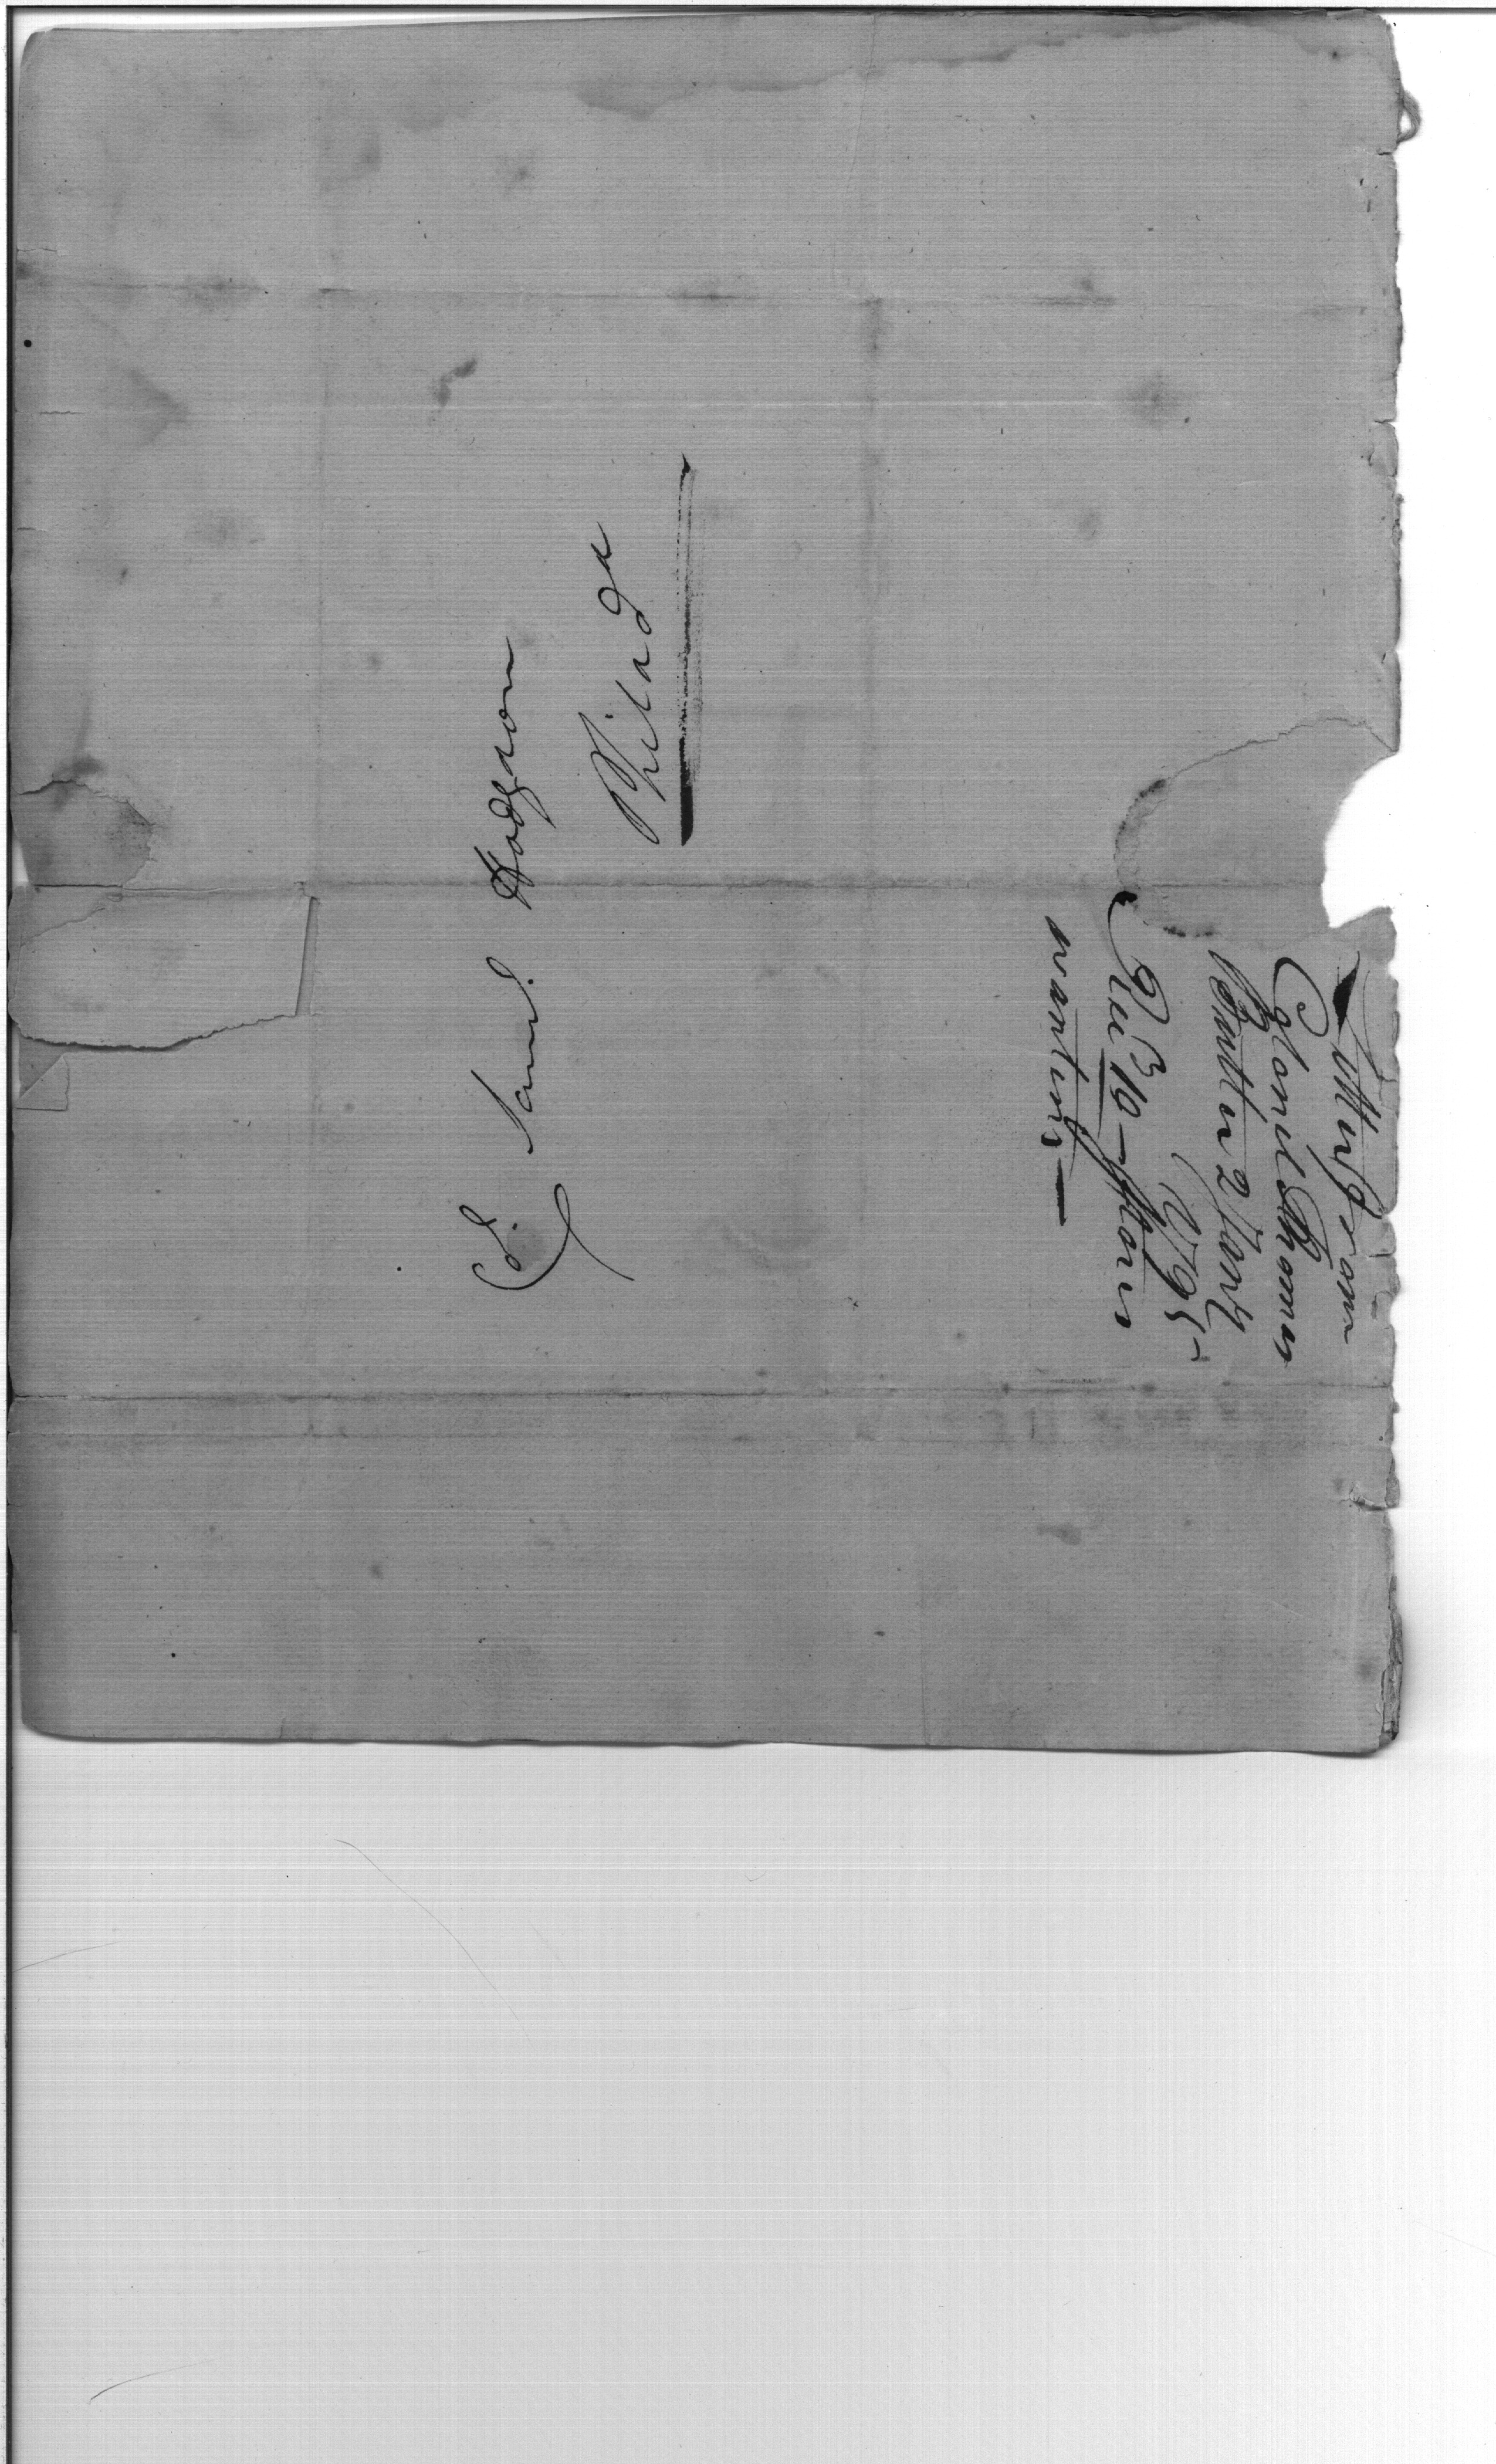 Saml. Hodgdon
Philada
Letter from
Colonel Thomas
Butler 2 Jany
1795
Recd. 10 - Stores
wanting -